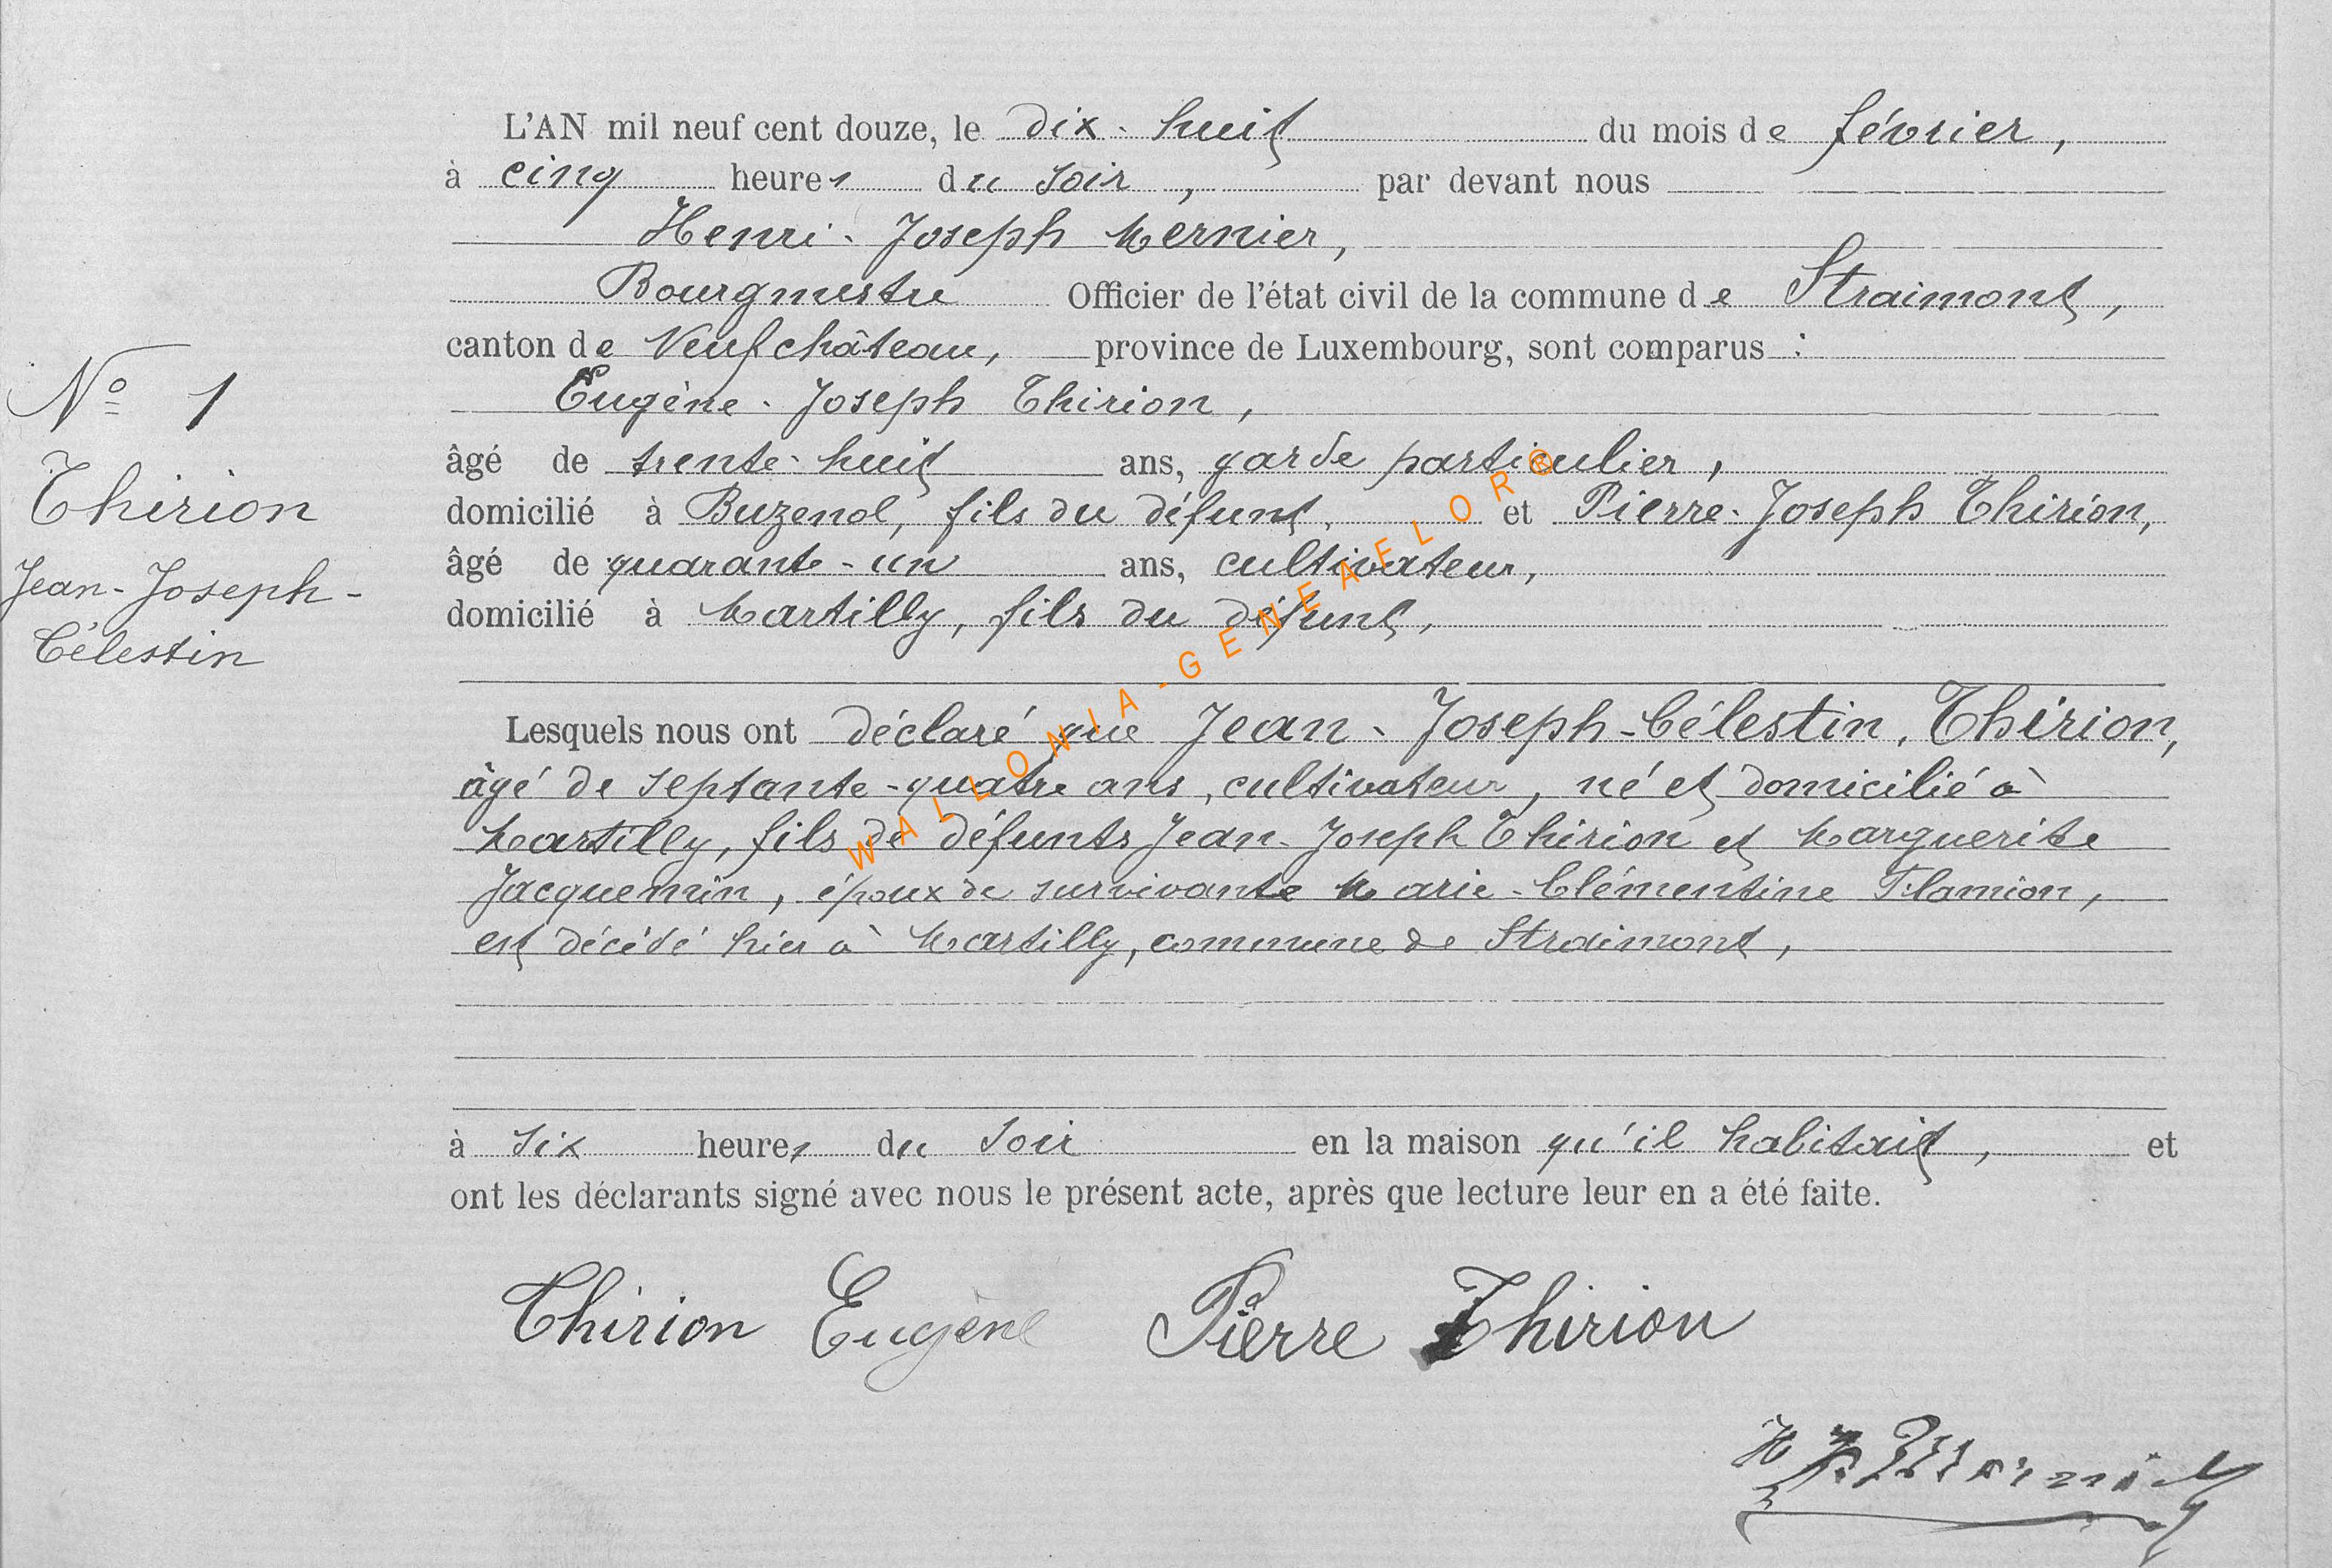 L'AN mil neuf cent douze, le dix-huit du mois de février,
à cinq heures du soir, par devant nous
Henri-Joseph Mernier,
Bourgmestre Officier de l'état civil de la commune de Straimont,
canton de Neufchâteau, province de Luxembourg, sont comparus :
Eugène-Joseph Thirion,
âgé de trente-huit ans, garde particulier,
domicilié à Buzenol, fils du défunt, et Pierre-Joseph Thirion,
âgé de quarante-un ans, cultivateur,
domicilié à Martilly, fils du défunt,
N° 1
Thirion
Jean-Joseph-
Célestin
Lesquels nous ont déclaré que Jean-Joseph-Célestin, Thirion,
âgé de septante-quatre ans, cultivateur, né et domicilié à
Martilly, fils de défunts Jean-Joseph Thirion et Marguerite
Jacquemin, époux de survivante Marie-Clémentine Flamion,
est décédé hier à Martilly, commune de Straimont,
à six heures du soir en la maison qu'il habitait, et
ont les déclarants signé avec nous le présent acte, après que lecture leur en a été faite.
Thirion Eugène Pierre Thirion
H J Mernier
WALLONIA-GENEAFLOR®